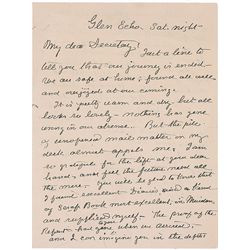 Glen Echo Sat. night-
My dear Secretary!
Just a line to
tell you that our journey is ended-
We are safe at home; found all well
and rejoiced at our coming.
It is pretty warm and dry but all
looks so lovely - nothing has gone
wrong in our absence.. But the pile
of unopened mail matter on my
desk almost appals me; I am
so grateful for the lift at your dear
hand, and feel the future need all
the more. You will be glad to know that
I found excellent
of Scrap Book most excellent, in Museum
and supplied myself - The proof of the
Report had gone when we arrived;
and I can imagine you in the depths